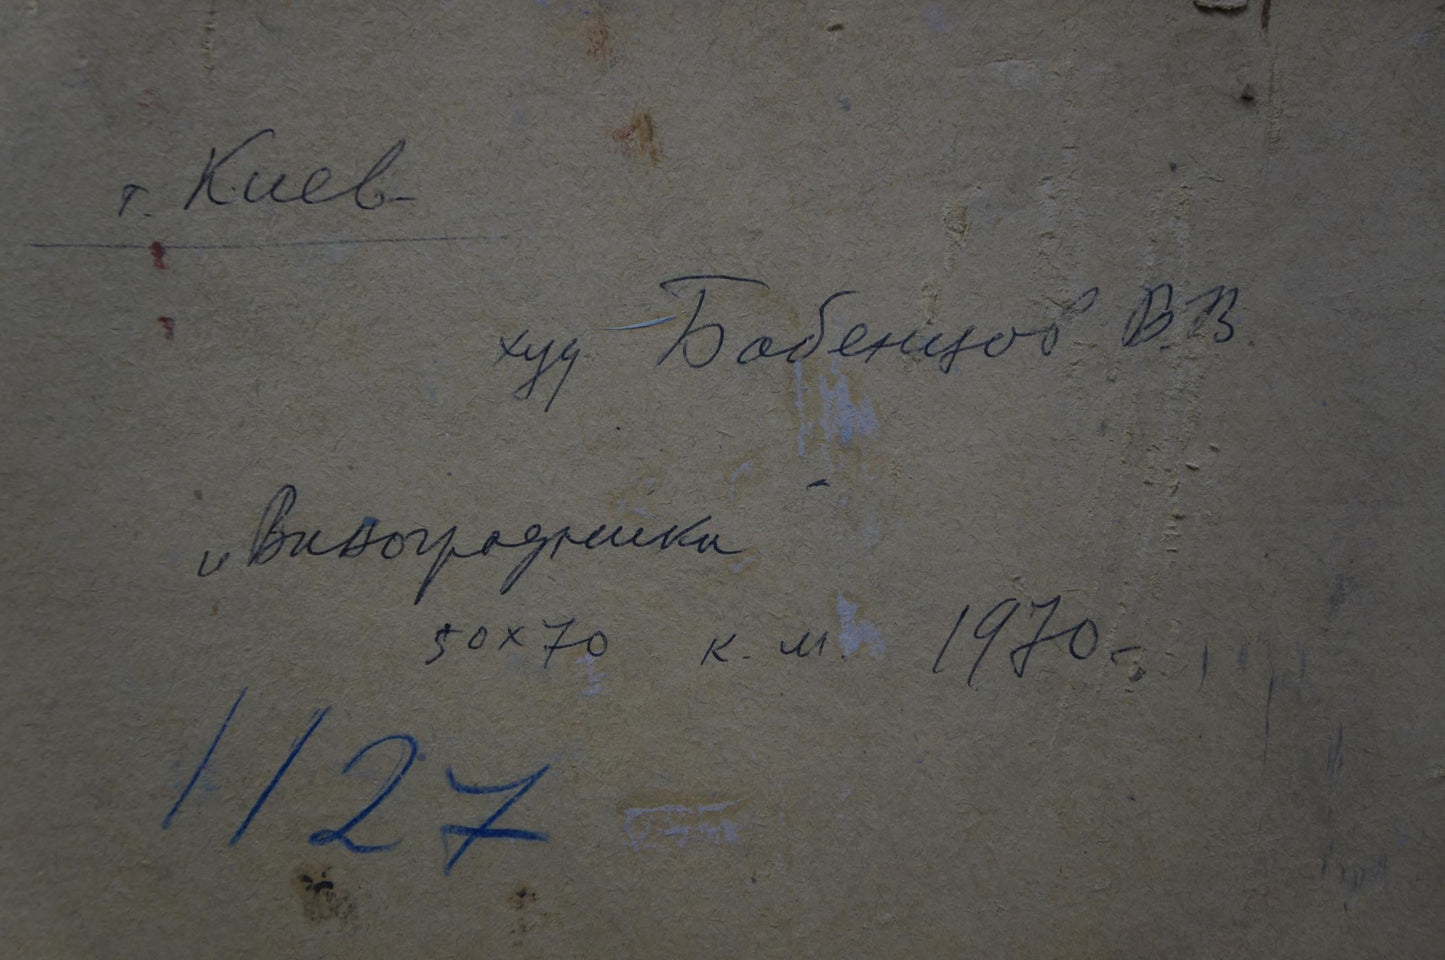 г. Киев
худ Бабенцов В.В.
„Виноградники
50x70 к. м. 1970
1127